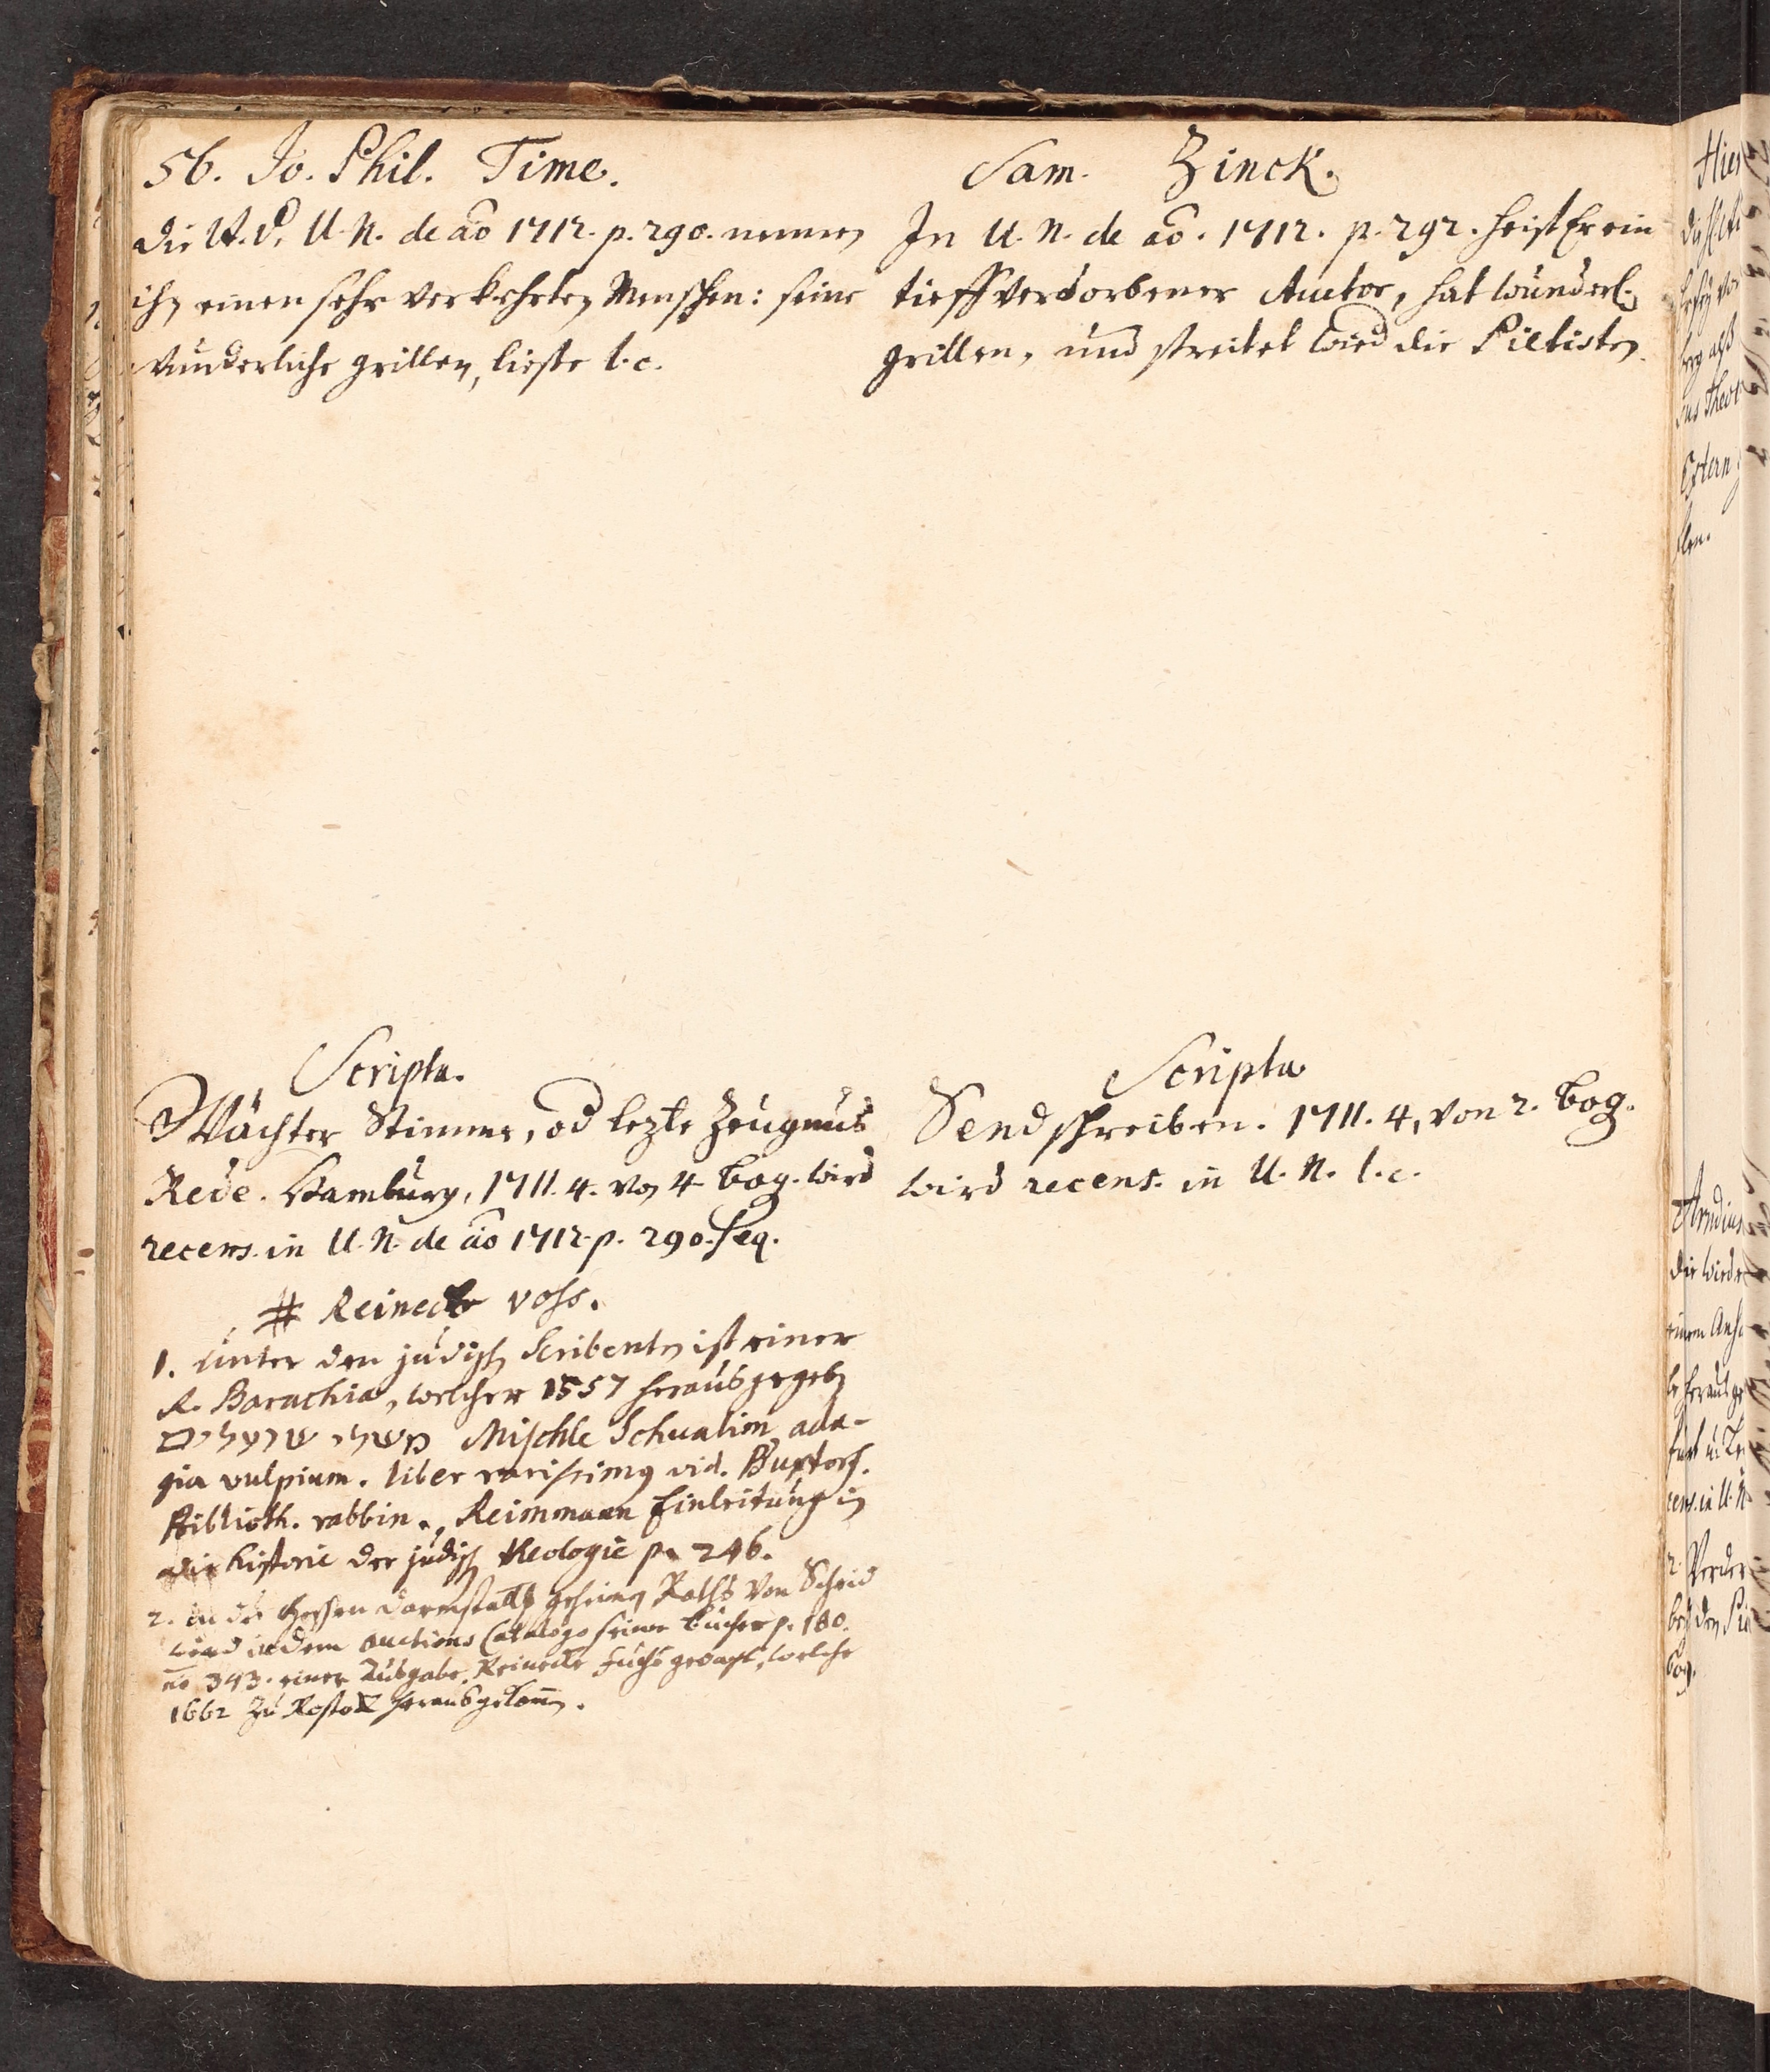 56. Jo. Phil. Time.
Die U. N. de ao 1712. p. 290. nennen
ihn einen sehr verkehrten Menschen: seine
wunderliche grillen, liese l. c.
Scripta.
Wächter Stimme, od letzte Zeugnus
Rede. Hamburg, 1711. 4. von 4 bog. wird
recens. in U. N. de ao 1712. p. 290. seq.
# Reineck voss.
1. Unter den jüdisch Scribenten ist einer
R. Barachia, welcher 1557 herausgegeben
משלי שועלים Mischle Schualim, ada-
gia vulpium. liber rarissimus vid. Buxtorf.
Biblioth. rabbin., Reimmann Einleitung in
die historie der jüdisch theologie p. 246.
2. In des Hessen Darmstatt geheimen Raths von Scheid
wird in dem auctions Catalogo seiner bücher p. 180.
no 343. einer Ausgabe Reinecke Fuchs gedacht, welche
1662 zu Rostok herausgekommen.
Sam. Zinck.
In U. N. de ao. 1712. p. 292. heist Er ein
tieff verdorbener Auctor, hat wunderl.
grillen, und streitet wied die Pietisten.
Scripta
Sendschreiben. 1711. 4, von 2. bog.
wird recens. in U. N. l. c.